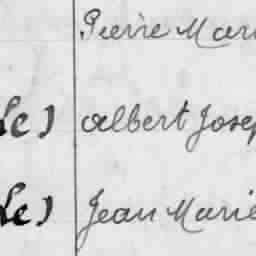 Pierre Mari
Le) Albert Josep
Le) Jean Marie